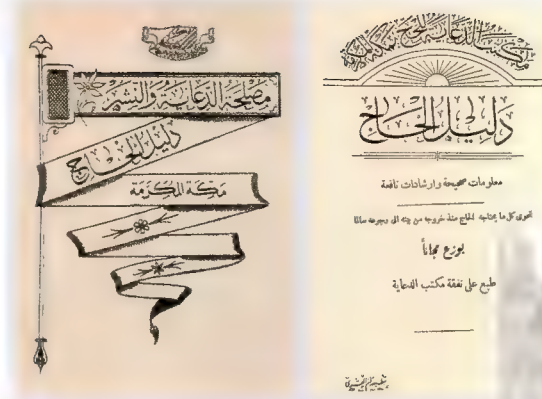 مكتب الدعاية للحج بمكة المكرمة
دليل الحاج
معلومات صحيحة وارشادات نافعة
تحوى كل ما يحتاجه الحاج منذ خروجه من بيته الى رجوعه سالما
يوزع مجاناً
طبع على نفقة مكتب الدعاية
مصلحة الدعاية والنشر
دليل الحاج
مكة المكرمة